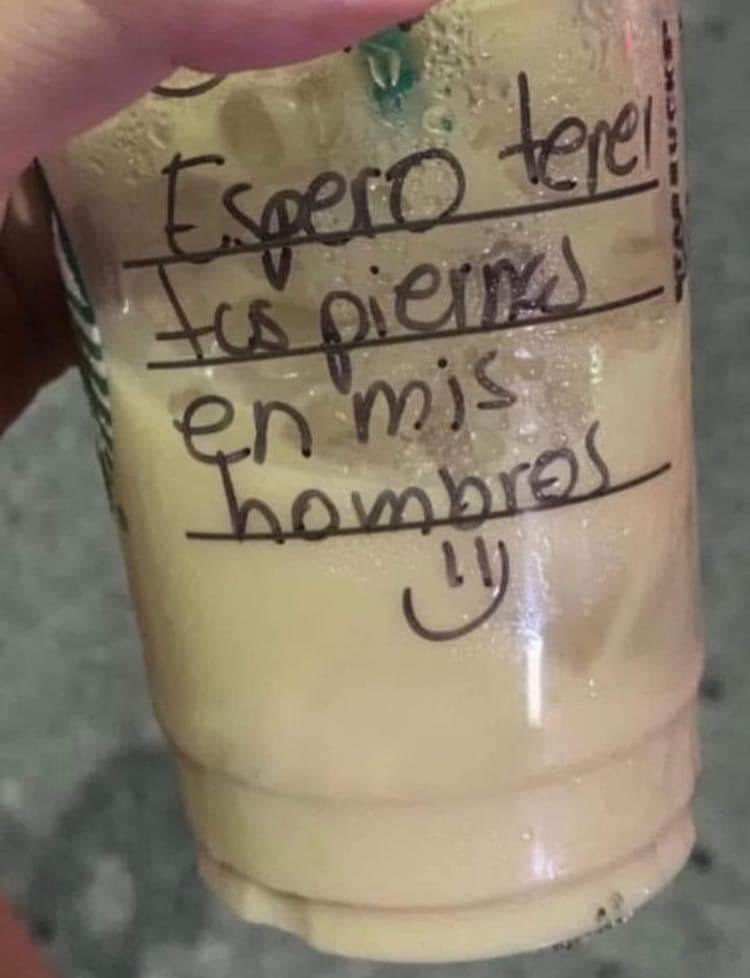 Espero tener
tus piernas
en mis
hombros